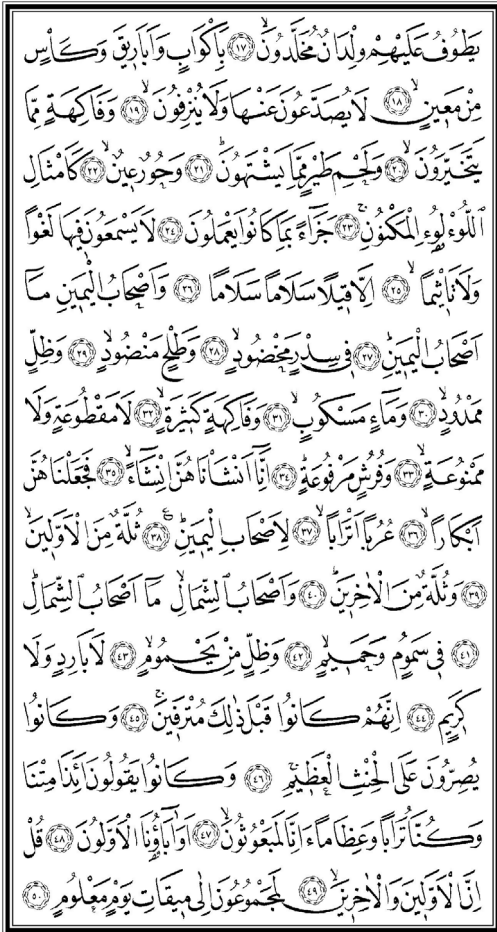 يَطُوفُ عَلَيْهِمْ وِلْدَانٌ مُخَلَّدُونَۙ ﴿١٧﴾ بِاَكْوَابٍ وَاَبَارِيقَ وَكَأْسٍ
مِنْ مَعِينٍۙ ﴿١٨﴾ لَا يُصَدَّعُونَ عَنْهَا وَلَا يُنْزِفُونَۙ ﴿١٩﴾ وَفَاكِهَةٍ مِمَّا
يَتَخَيَّرُونَۙ ﴿٢٠﴾ وَلَحْمِ طَيْرٍ مِمَّا يَشْتَهُونَۜ ﴿٢١﴾ وَحُورٌ عِينٌۙ ﴿٢٢﴾ كَاَمْثَالِ
اللُّؤْلُؤِ۬ الْمَكْنُونِۚ ﴿٢٣﴾ جَزَٓاءً بِمَا كَانُوا يَعْمَلُونَ ﴿٢٤﴾ لَا يَسْمَعُونَ فِيهَا لَغْوًا
وَلَا تَأْثِيمًاۙ ﴿٢٥﴾ اِلَّا قِيلًا سَلَامًا سَلَامًا ﴿٢٦﴾ وَاَصْحَابُ الْيَمِينِ مَٓا
اَصْحَابُ الْيَمِينِۜ ﴿٢٧﴾ فِي سِدْرٍ مَخْضُودٍۙ ﴿٢٨﴾ وَطَلْحٍ مَنْضُودٍۙ ﴿٢٩﴾ وَظِلٍّ
مَمْدُودٍۙ ﴿٣٠﴾ وَمَٓاءٍ مَسْكُوبٍۙ ﴿٣١﴾ وَفَاكِهَةٍ كَثِيرَةٍۙ ﴿٣٢﴾ لَا مَقْطُوعَةٍ وَلَا
مَمْنُوعَةٍۙ ﴿٣٣﴾ وَفُرُشٍ مَرْفُوعَةٍۜ ﴿٣٤﴾ اِنَّٓا اَنْشَأْنَاهُنَّ اِنْشَٓاءًۙ ﴿٣٥﴾ فَجَعَلْنَاهُنَّ
اَبْكَارًاۙ ﴿٣٦﴾ عُرُبًا اَتْرَابًاۙ ﴿٣٧﴾ لِاَصْحَابِ الْيَمِينِۜ ﴿٣٨﴾ ثُلَّةٌ مِنَ الْاَوَّلِينَۙ
﴿٣٩﴾ وَثُلَّةٌ مِنَ الْاٰخِرِينَۜ ﴿٤٠﴾ وَاَصْحَابُ الشِّمَالِۙ مَٓا اَصْحَابُ الشِّمَالِۜ
﴿٤١﴾ فِي سَمُومٍ وَحَمِيمٍۙ ﴿٤٢﴾ وَظِلٍّ مِنْ يَحْمُومٍۙ ﴿٤٣﴾ لَا بَارِدٍ وَلَا
كَرِيمٍ ﴿٤٤﴾ اِنَّهُمْ كَانُوا قَبْلَ ذٰلِكَ مُتْرَفِينَۚ ﴿٤٥﴾ وَكَانُوا
يُصِرُّونَ عَلَى الْحِنْثِ الْعَظِيمِۚ ﴿٤٦﴾ وَكَانُوا يَقُولُونَ اَئِذَا مِتْنَا
وَكُنَّا تُرَابًا وَعِظَامًا ءَاِنَّا لَمَبْعُوثُونَۙ ﴿٤٧﴾ اَوَاٰبَٓاؤُ۬نَا الْاَوَّلُونَ ﴿٤٨﴾ قُلْ
اِنَّ الْاَوَّلِينَ وَالْاٰخِرِينَۙ ﴿٤٩﴾ لَمَجْمُوعُونَ اِلٰى مِيقَاتِ يَوْمٍ مَعْلُومٍ ﴿٥٠﴾